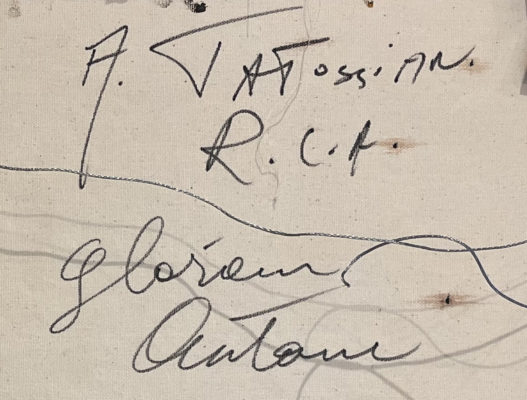 A. TATOSSiAN.
R.C.A.
glorieux
Automne